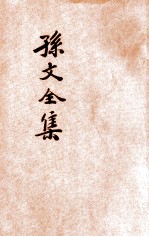 孫文全集